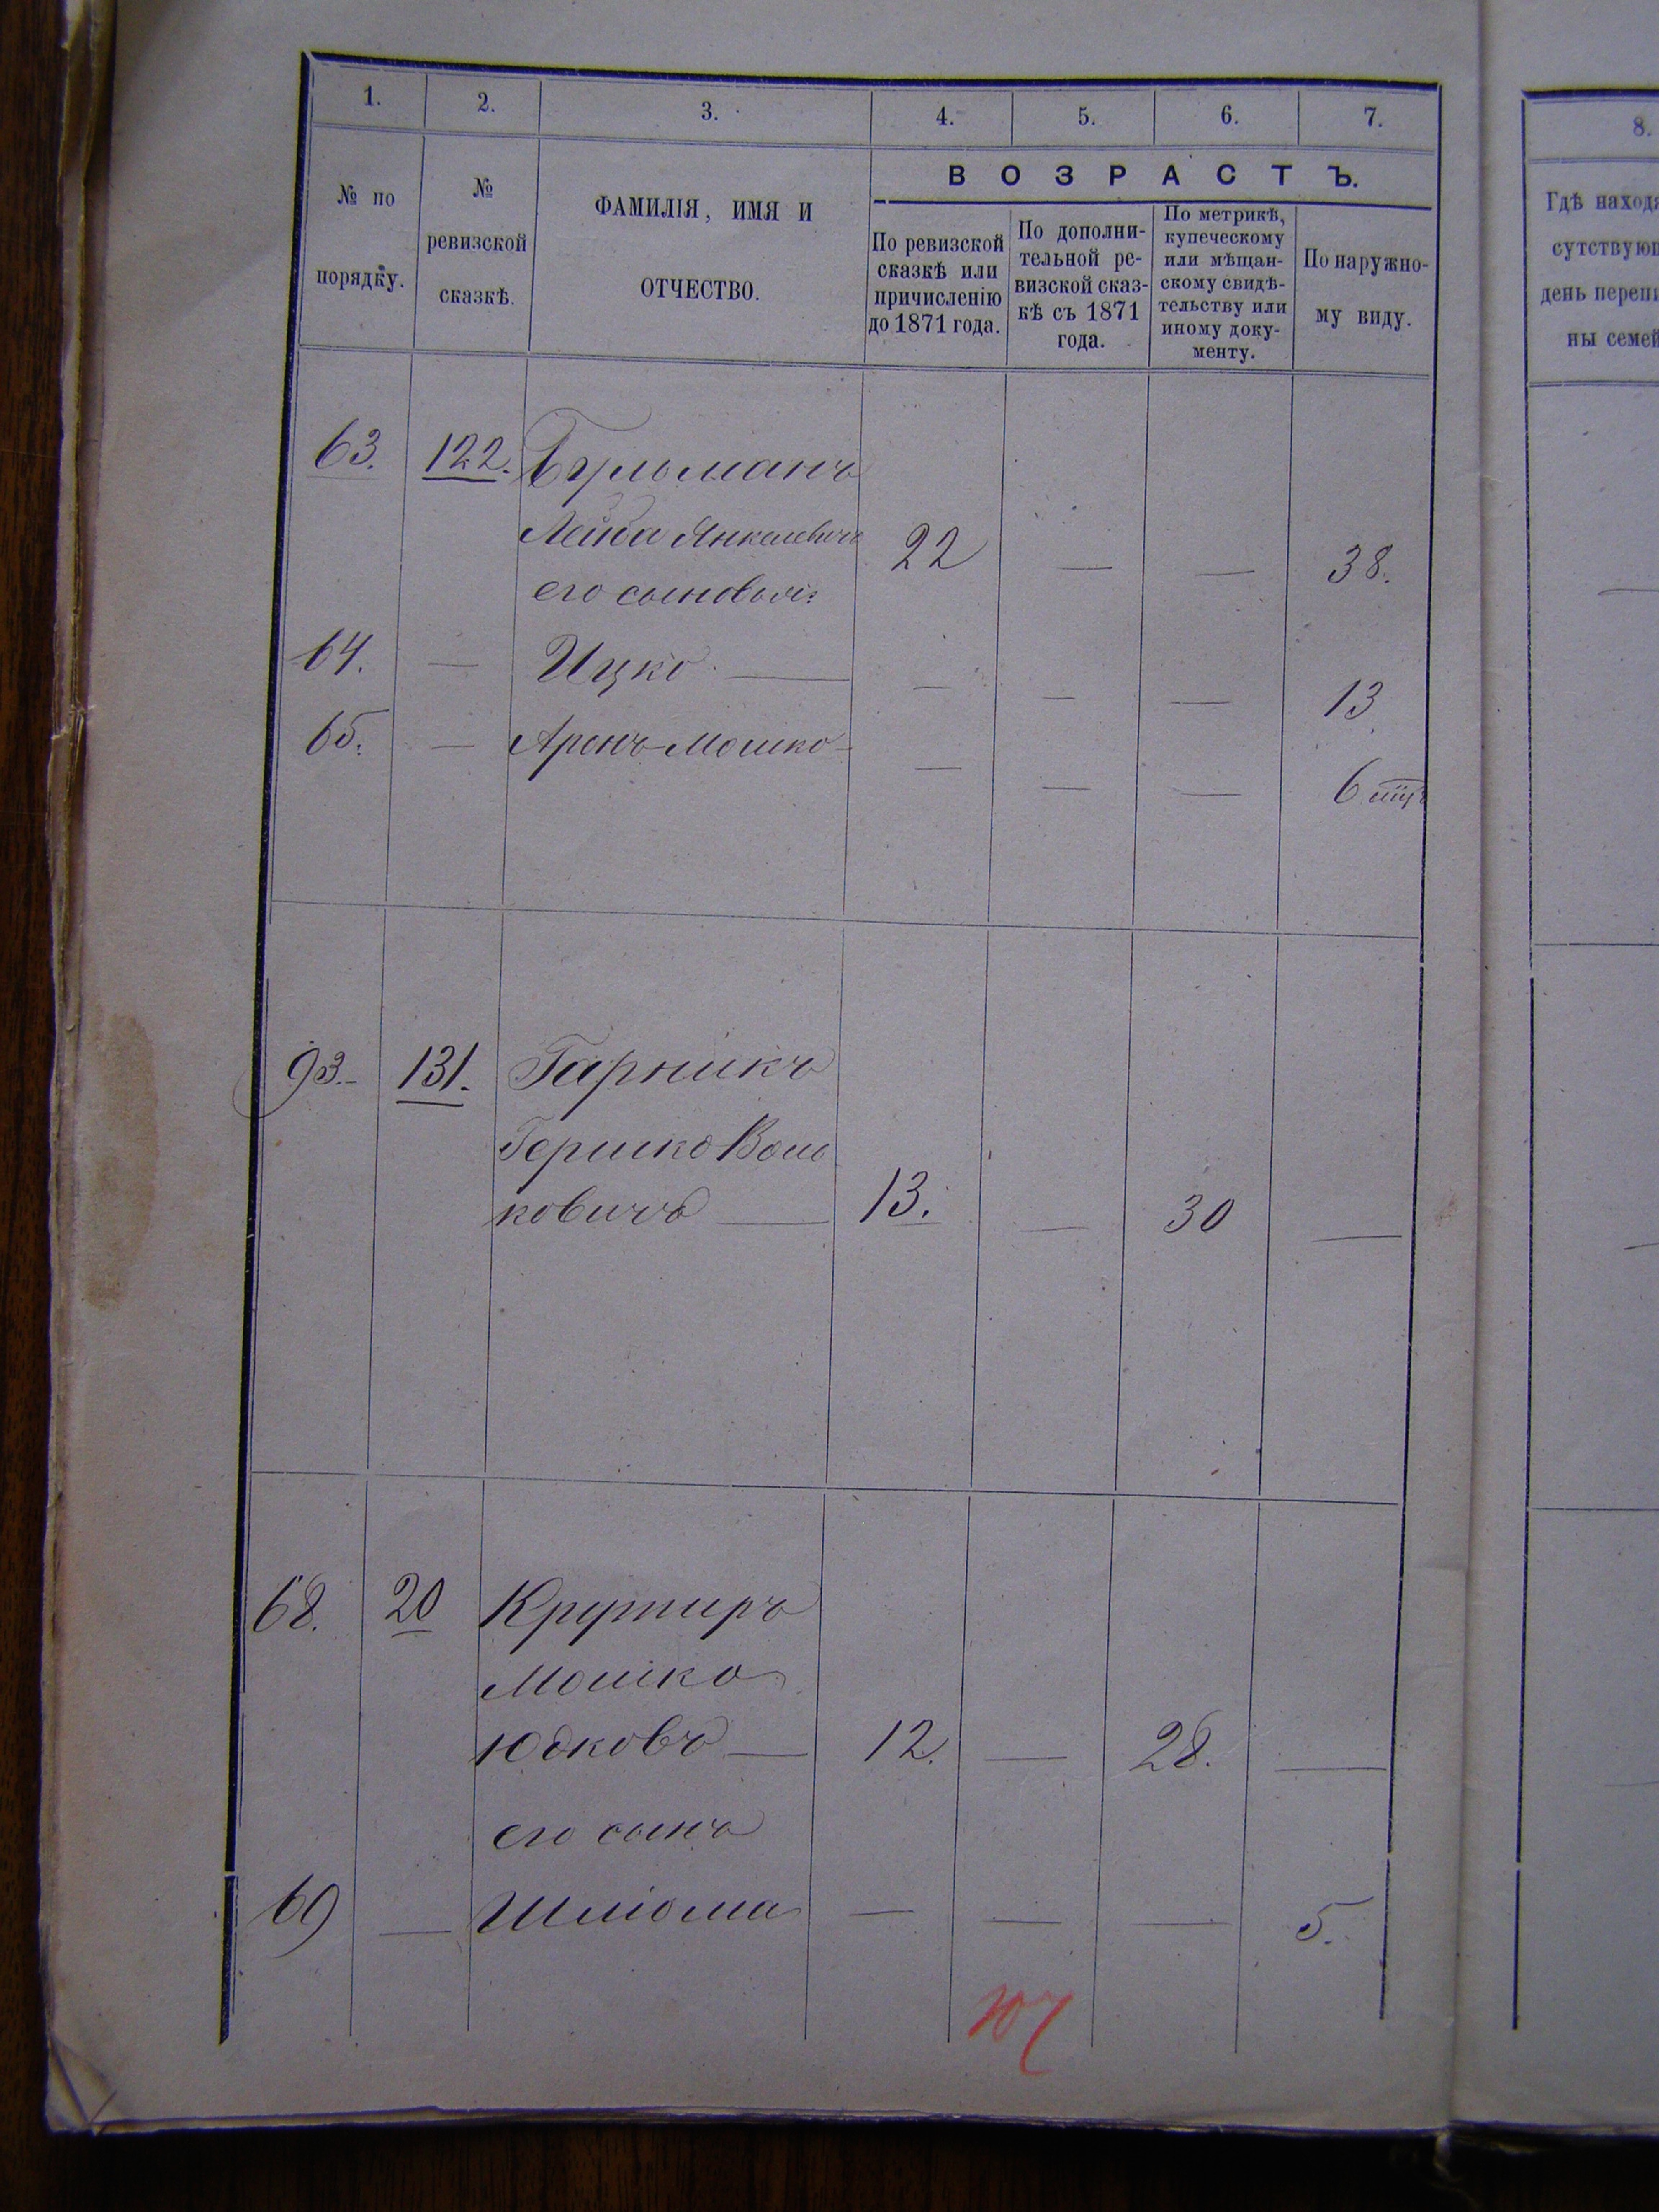 1. 2. 3. 4. 5. 6. 7.
№ по порядку.
№ ревизской сказкѣ.
ФАМИЛІЯ, ИМЯ И
ОТЧЕСТВО.
ВОЗРАСТЪ.
По ревизской
сказкѣ или
причисленію
до 1871 года.
По дополни-
тельной ре-
визской сказ-
кѣ съ 1871
года.
По метрикѣ,
купеческому
или мѣщан-
скому свидѣ-
тельству или
иному доку-
менту.
По наружно-
му виду.
8.
Гдѣ находя
сутствую
день переп
ны семей
63. 122. Бульманъ
Лейба Янкелевичъ 22 — — 38.
его сыновья:
64. — Ицко — — — — 13
65. — Аронъ-Мошко — — — 6
93.- 131. Гарникъ
Гершко Воль
ковичъ — 13. — 30 —
68. 20 Крутиръ
Мошко
Юдковъ — 12. — 28. —
его сынъ
69 — Шліома — — — 5.